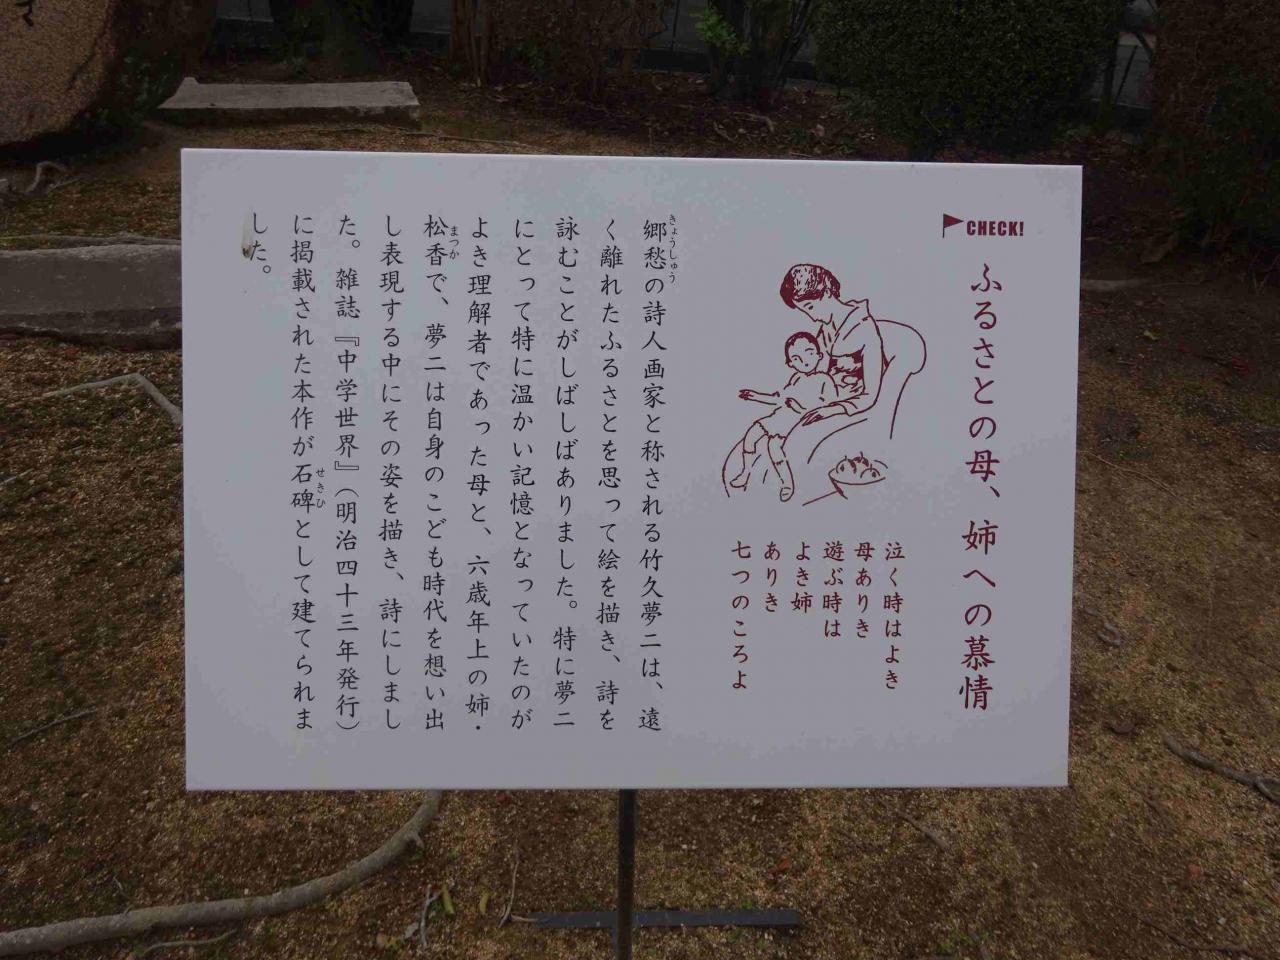 CHECK!
ふるさとの母、姉への慕情
泣く時はよき
母ありき
遊ぶ時は
よき姉
ありき
七つのころよ
郷愁の詩人画家と称される竹久夢二は、遠
きょうしゅう
く離れたふるさとを思って絵を描き、詩を
詠むことがしばしばありました。特に夢二
にとって特に温かい記憶となっていたのが
よき理解者であった母と、六歳年上の姉・
松香で、夢二は自身のこども時代を想い出
まつか
し表現する中にその姿を描き、詩にしまし
た。雑誌『中学世界』（明治四十三年発行）
に掲載された本作が石碑として建てられま
せきひ
した。